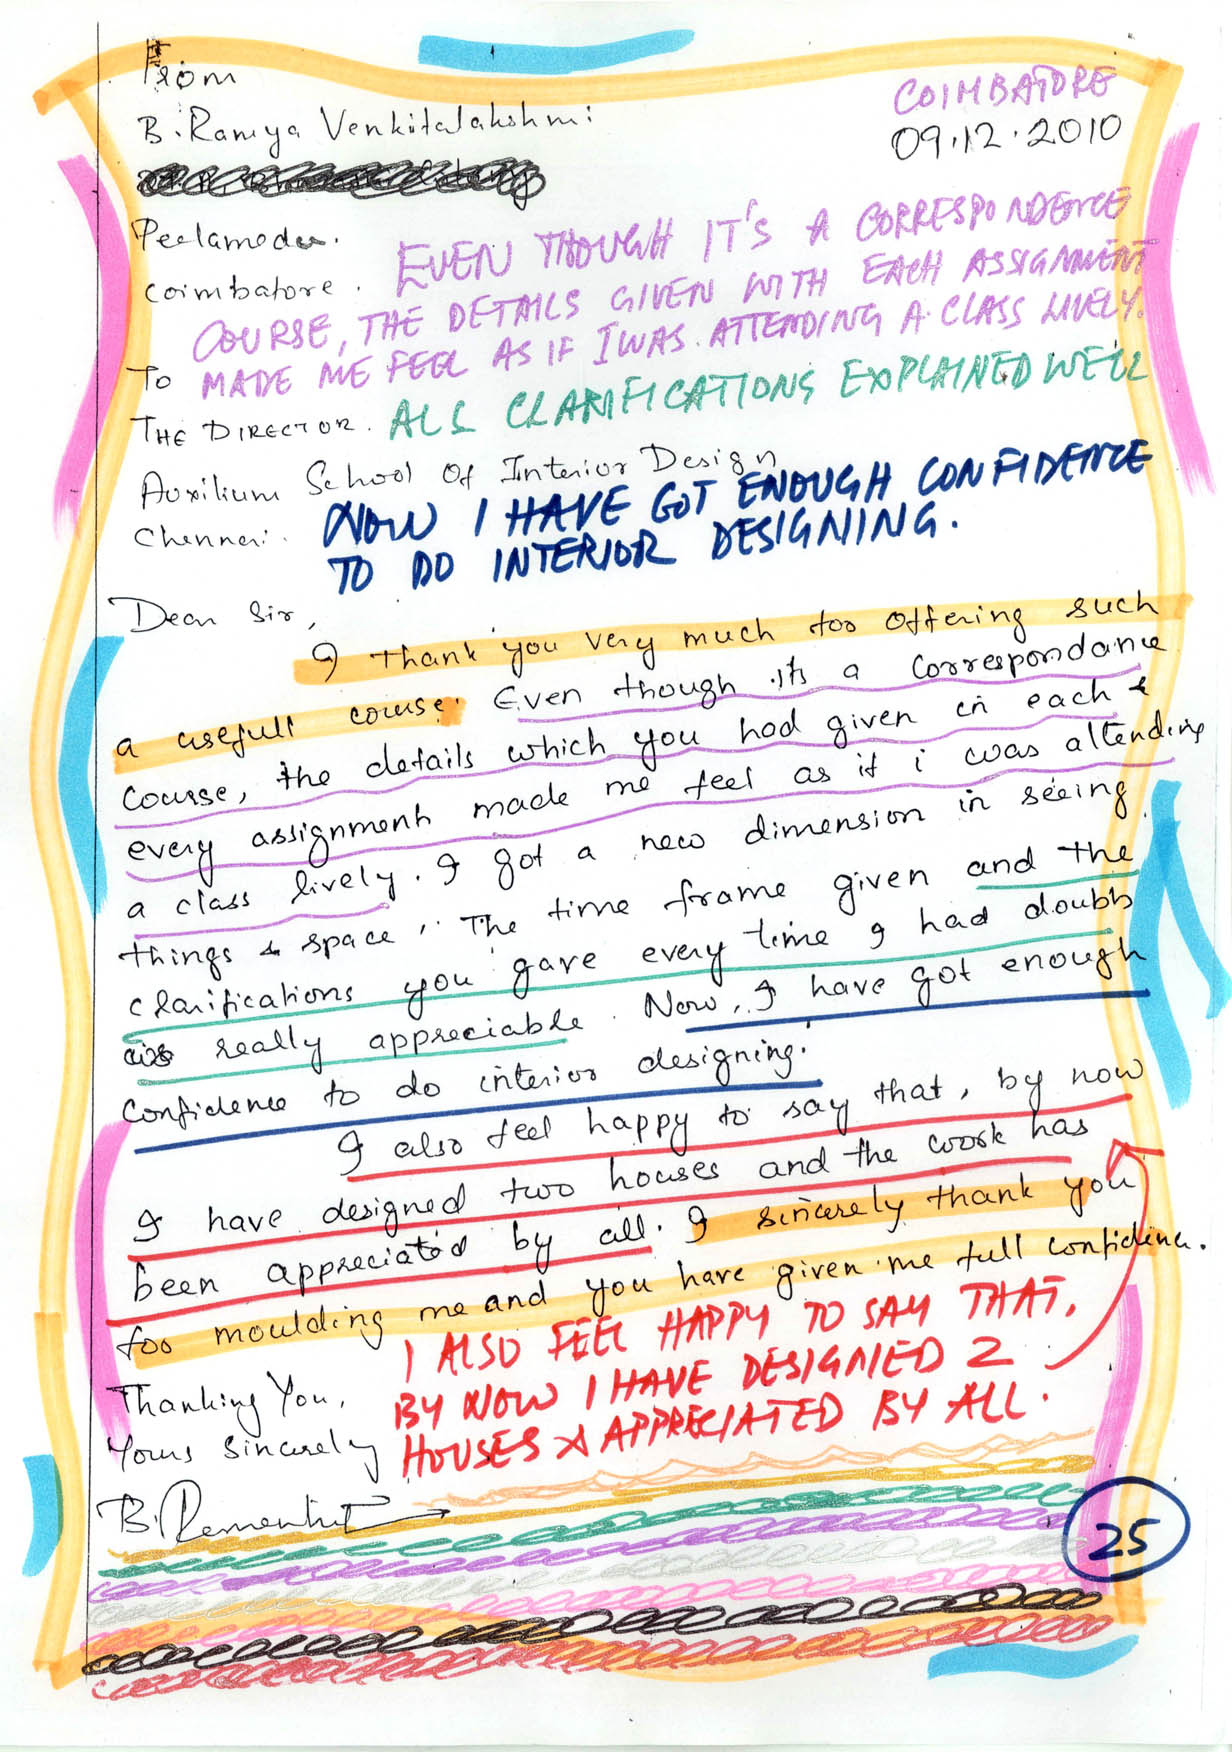 From
COIMBATORE
B. Ramya Venkitalakshmi
09.12.2010
Peelamedu.
Coimbatore.
EVEN THOUGH IT'S A CORRESPONDENCE
COURSE, THE DETAILS GIVEN WITH EACH ASSIGNMENT
MADE ME FEEL AS IF I WAS ATTENDING A CLASS LIVELY.
To
THE DIRECTOR.
ALL CLARIFICATIONS EXPLAINED WELL
Auxilium School Of Interior Design
Chennai.
NOW I HAVE GOT ENOUGH CONFIDENCE
TO DO INTERIOR DESIGNING.
Dear Sir,
I thank you very much for offering such
a usefull course. Even though its a correspondance
course, the details which you had given in each &
every assignment made me feel as if i was attending
a class lively. I got a new dimension in seeing
things & space. The time frame given and the
clarifications you gave every time I had doubts
is really appreciable. Now, I have got enough
confidence to do interior designing.
I also feel happy to say that, by now
I have designed two houses and the work has
been appreciated by all. I sincerely thank you
for moulding me and you have given me full confidence.
I ALSO FEEL HAPPY TO SAY THAT,
BY NOW I HAVE DESIGNED 2
HOUSES & APPRECIATED BY ALL.
Thanking You,
Yours Sincerely
25